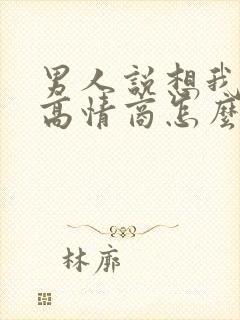 男人說想我
高情商怎麼
林廓